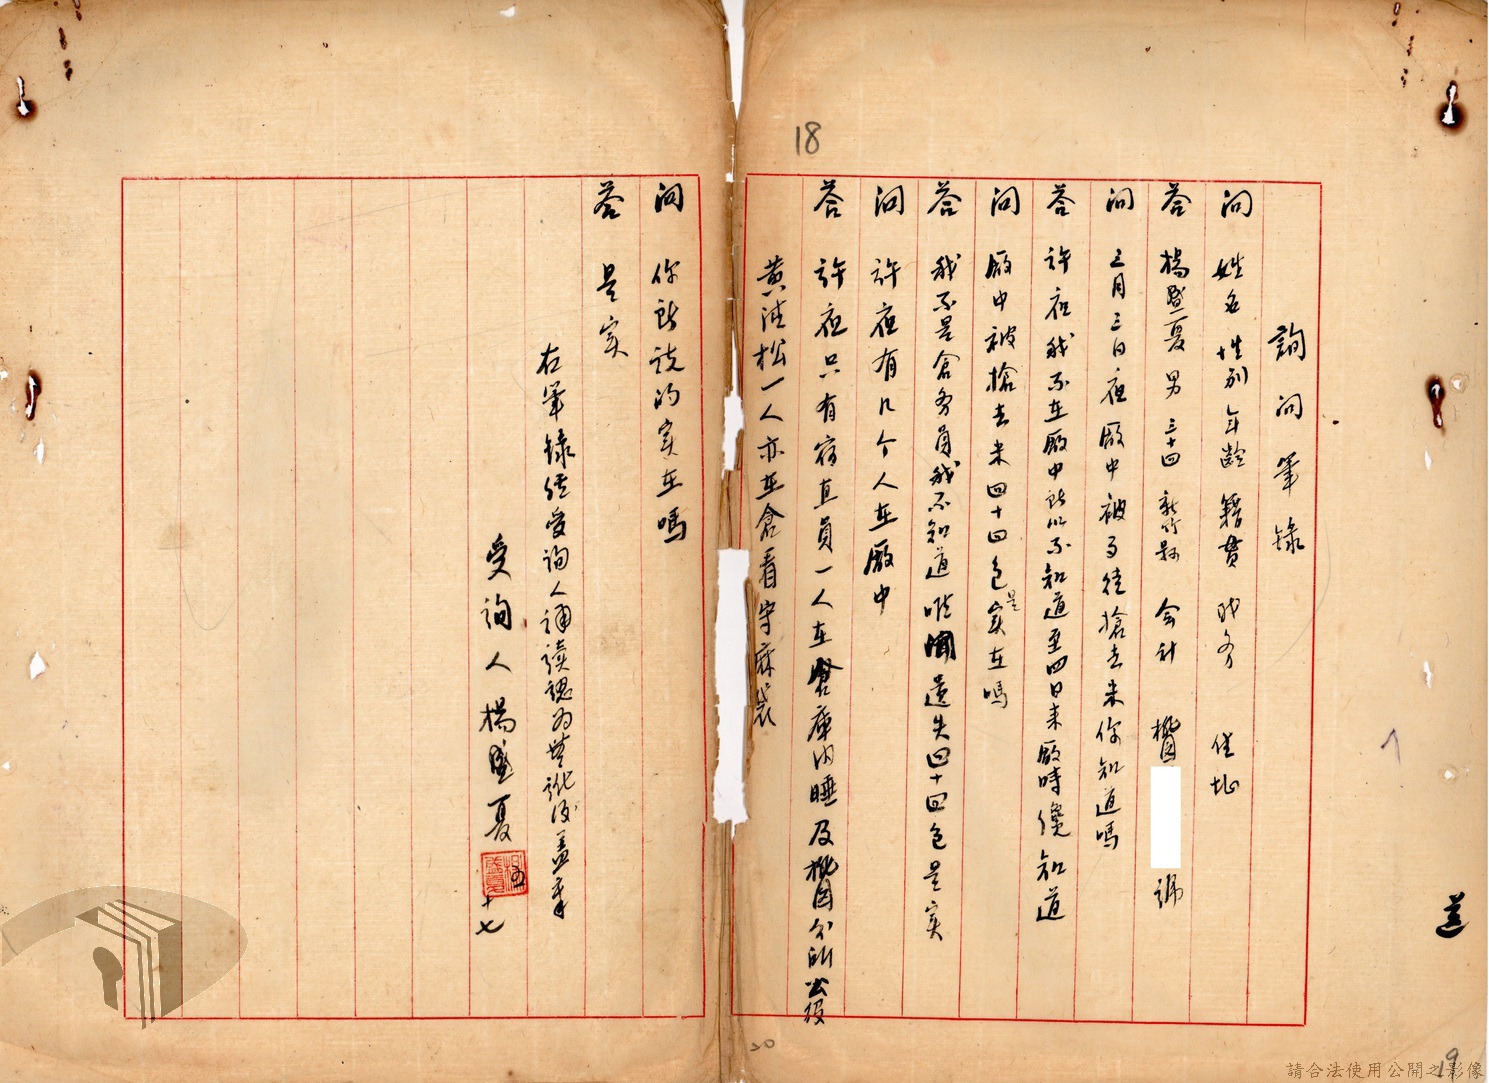 18
詢問筆錄
問 姓名 性別 年齡 籍貫 職務 住址
答 楊盛夏 男 三十四 新竹縣 会計 桃園 號
問 三月三日夜廠中被歹徒搶去米你知道嗎
答 許夜我不在廠中所以不知道至四日来廠時儳知道
問 廠中被搶去米四十四包是实在嗎
答 我不是倉务員我不知道唯聞遺失四十四包是实
問 許夜有几个人在廠中
答 許夜只有宿直員一人在倉庫内睡及桃園分所公役
黄 松一人亦在倉看守麻袋
問 你所説的实在嗎
答 是实
右筆錄経受詢人誦讀認為無訛後盖章
受詢人 楊盛夏
五
十七
送
19
20
請合法使用公開之影像